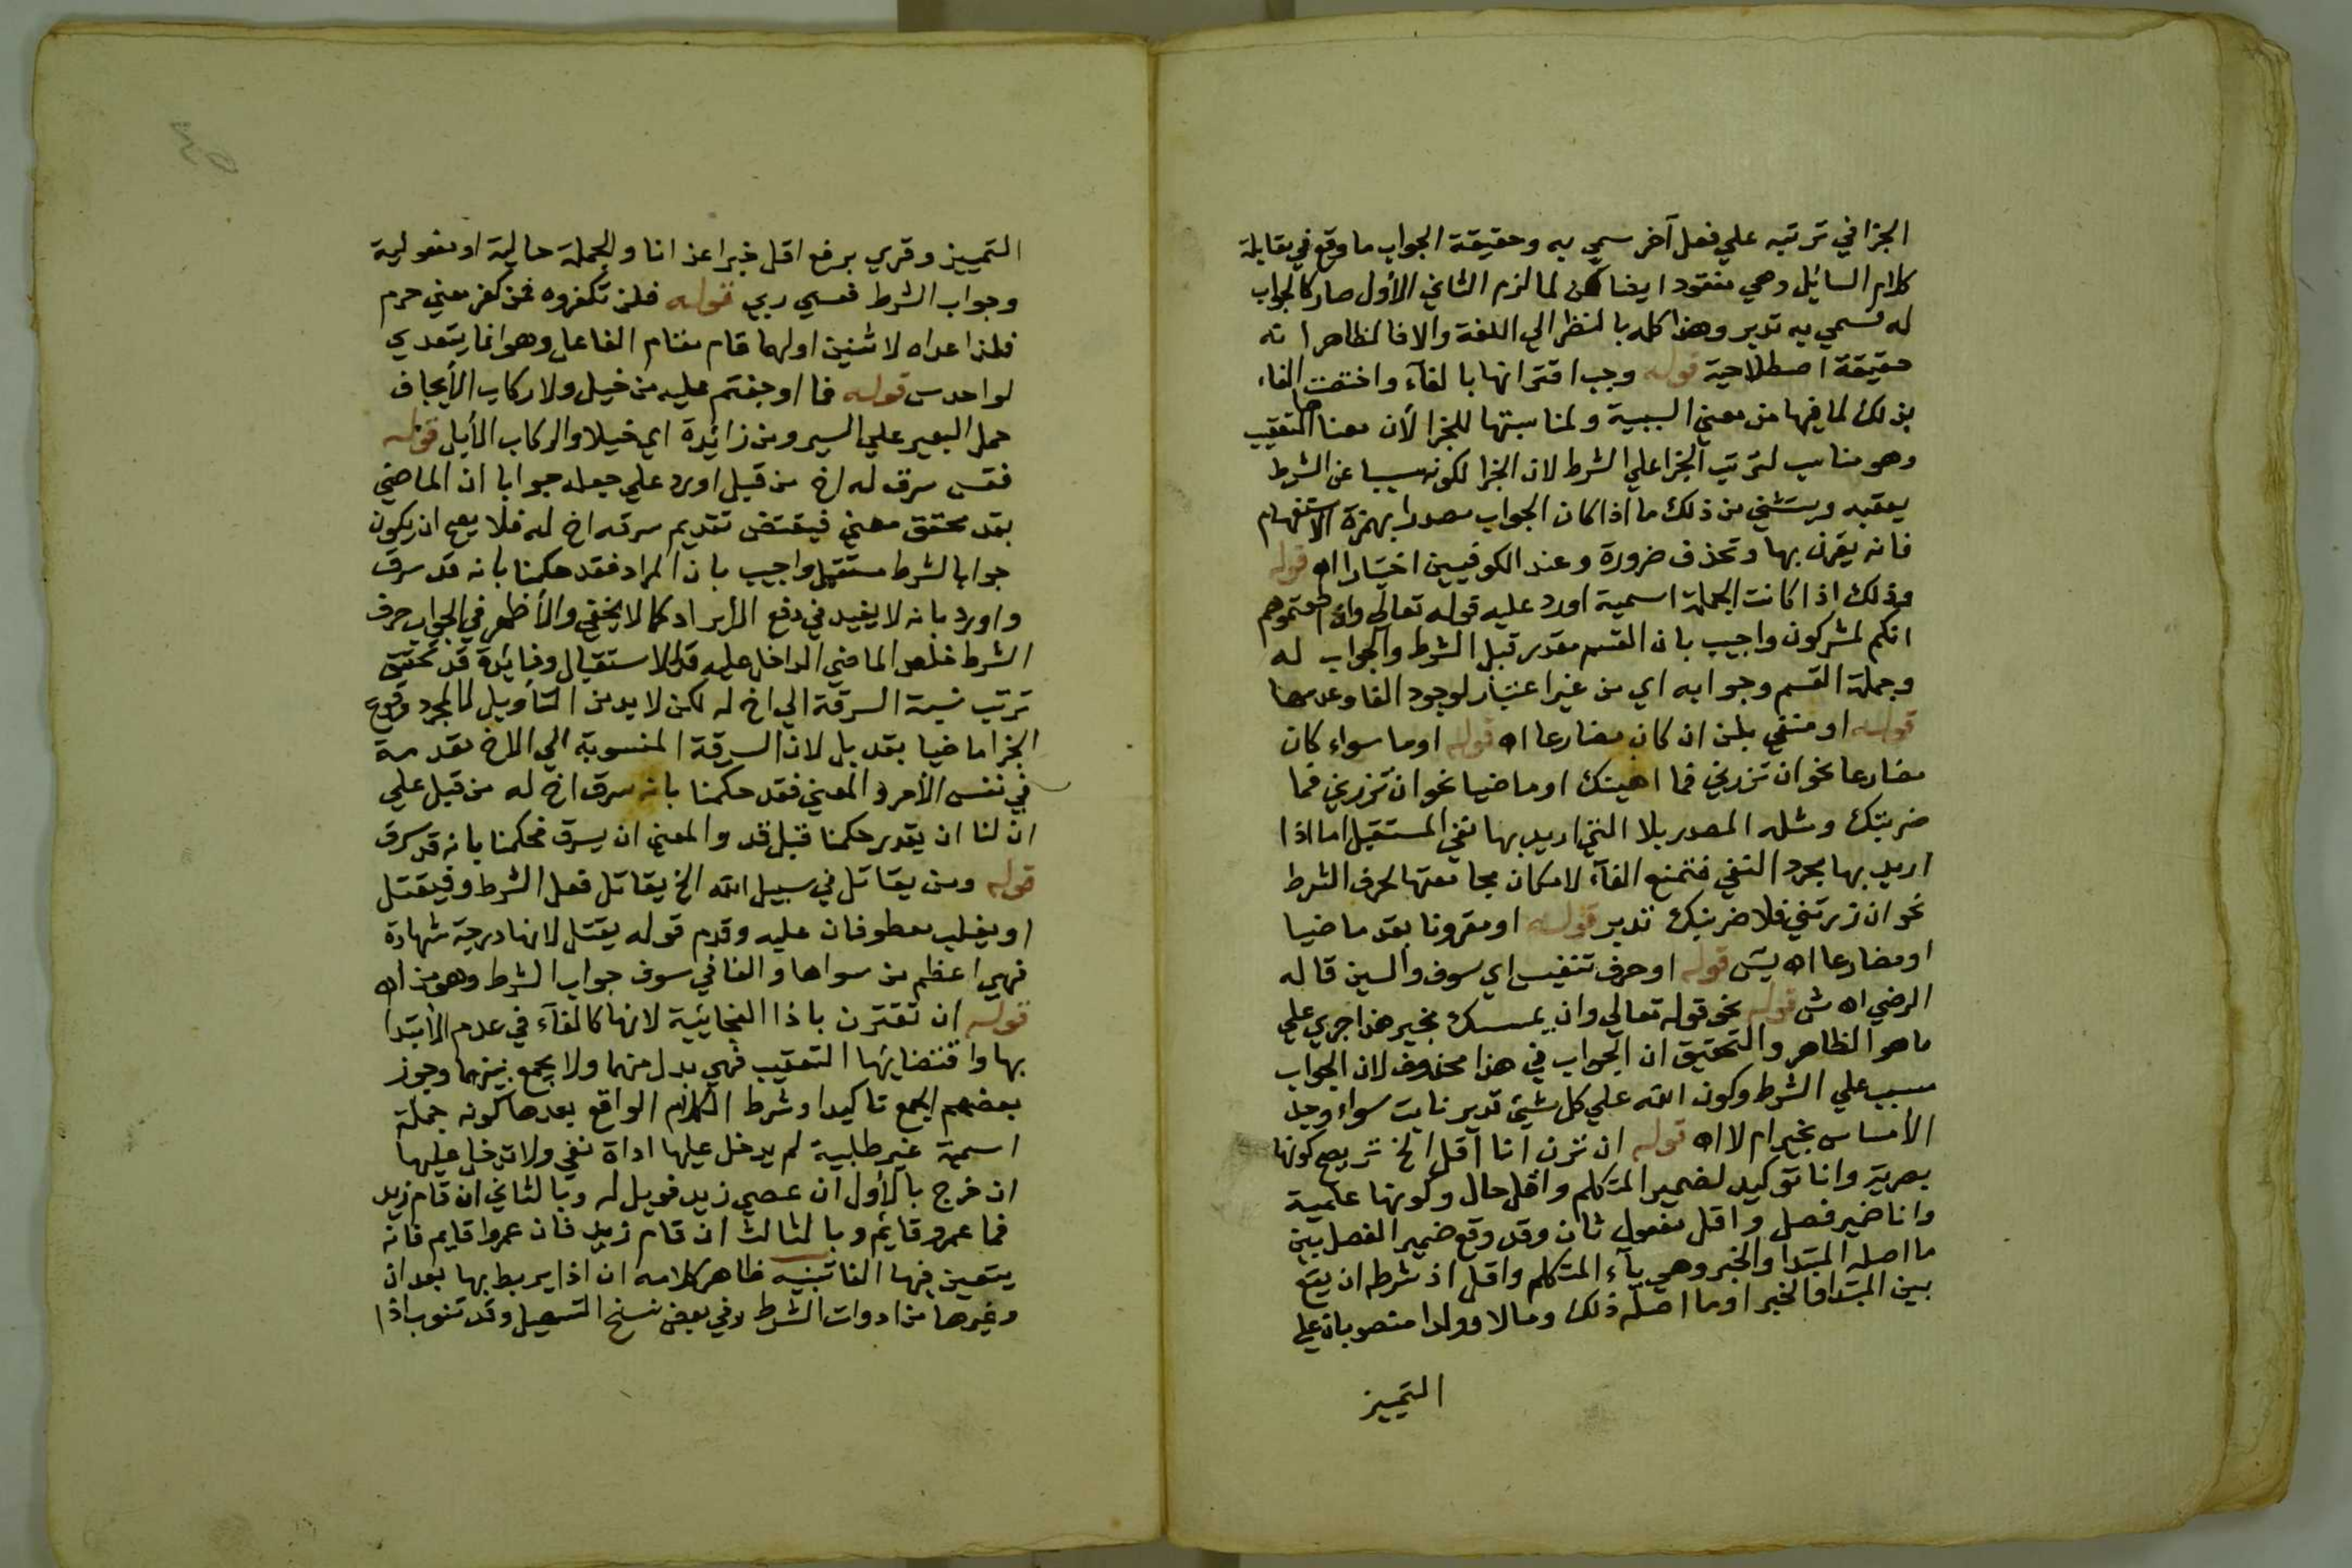 الجزا في ترتبه علي فعل آخر سمي به وحقيقة الجواب ما وقع في مقابلة
كلام السائل وهي مفقود ايضا لكن لما لزم الثاني الأول صار كالجواب
له فسمي به تدبر وهذا كله بالنظر الي اللغة والا فالظاهر انه
حقيقة اصطلاحية قوله وجب اقترانها بالفآء واختصت الفاء
بذلك لما فيها من معني السببية ولمناسبتها للجزا لأن معناها التعقيب
وهو مناسب لترتب الجزا علي الشرط لان الجزا لكونه سببا عن الشرط
يعقبه ويستثني من ذلك ما اذا كان الجواب مصدرا بهمزة الاستفهام
فانه يقرن بها وتحذف ضرورة وعند الكوفيين اختيارا اه قوله
وذلك اذا كانت الجملة اسمية اورد عليه قوله تعالي وان اطعتموهم
انكم لمشركون واجيب بان القسم مقدر قبل الشرط والجواب له
وجملة القسم وجوابه اي من غير اعتبار لوجود الفا وعدمها
قوله او منفي بلن ان كان مضارعا اه قوله او ما سواء كان
مضارعا نحو ان تزرني فما اهينك او ماضيا نحو ان تزرني فما
ضربتك ومثله المصدر بلا التي اريد بها نفي المستقبل اما اذا
اريد بها مجرد النفي فتمنع الفآء لامكان مجامعتها لحرف الشرط
نحو ان زرتني فلا ضربنك تدبر قوله او مقرونا بقد ماضيا
او مضارعا اه يتس قوله او حرف تنفيس اي سوف والسين قاله
الرضي اه ش قوله نحو قوله تعالي وان يمسسك بخير هذا جري علي
ما هو الظاهر والتحقيق ان الجواب في هذا محذوف لان الجواب
مسبب علي الشرط وكون الله علي كل شيئ قدير ثابت سواء وجد
الأمساس بخير ام لا اه قوله ان ترن انا اقل الخ تري يصح كونها
بصرية وانا توكيد لضمير المتكلم واقل حال وكونها علمية
وانا ضمير فصل واقل مفعول ثان وقد وقع ضمير الفصل بين
ما اصله المبتدا والخبر وهي يآء المتكلم واقل اذ شرطه ان يقع
بين المبتدا والخبر او ما اصله ذلك ومالا وولدا منصوبان علي
التمييز
التمييز وقري برفع اقل خبرا عن انا والجملة حالية او مفعولية
وجواب الشرط فعسي ربي قوله فلن تكفروه ضمن كفر معني حرم
فلذا عداه لاثنين اولهما قام مقام الفاعل وهو انما يتعدي
لواحد س قوله فما اوجفتم عليه من خيل ولا ركاب الأيجاف
حمل البعير علي السير ومن زائدة اي خيلا والركاب الأبل قوله
فقد سرق له اخ من قبل اورد علي جعله جوابا ان الماضي
بقد محقق معني فيقتضي تقديم سرقه اخ له فلا يصح ان يكون
جوابا لشرط مستقبل واجيب بان المراد فقد حكمنا بانه قد سرق
واورد بانه لا يفيد في دفع الأيراد كما لا يخفي والأظهر في الجواب حرف
الشرط خلص الماضي الداخل عليه قد للاستقبال وفائدة قد تحقيق
ترتب نسبة السرقة الي اخ له لكن لا بد من التأويل لا لمجرد وقوع
الجزا ماضيا بقد بل لان السرقة المنسوبة الي الاخ مقدمة
في نفس الأمر والمعني فقد حكمنا بانه سرق اخ له من قبل علي
ان لنا ان يقدر حكمنا قبل قد والمعني ان يسرق فحكمنا بانه قد سرق
قوله ومن يقاتل في سبيل الله الخ يقاتل فعل الشرط وفيقتل
او يغلب معطوفان عليه وقدم قوله يقتل لانها درجة شهادة
فهي اعظم من سواها والفا في سوف جواب الشرط وهو من اه
قوله ان تقترن باذا الفجائية لانها كالفآء في عدم الأبتدا
بها واقتضائها التعقيب فهي بدل منها ولا يجمع بينهما وجوز
بعضهم الجمع تاكيدا وشرط الكلام الواقع بعدها كونه جملة
اسمية غير طلبية لم يدخل عليها اداة نفي ولا تدخل عليها
ان خرج بالأول ان عصي زيد فويل له وبالثاني ان قام زيد
فما عمرو قائم وبالثالث ان قام زيد فان عمروا قايم فانه
يتعين فيها الفا تنبيه ظاهر كلامه ان اذا يربط بها بعد ان
وغيرها من ادوات الشرط وفي بعض نسخ التسهيل وقد تنوب اذا